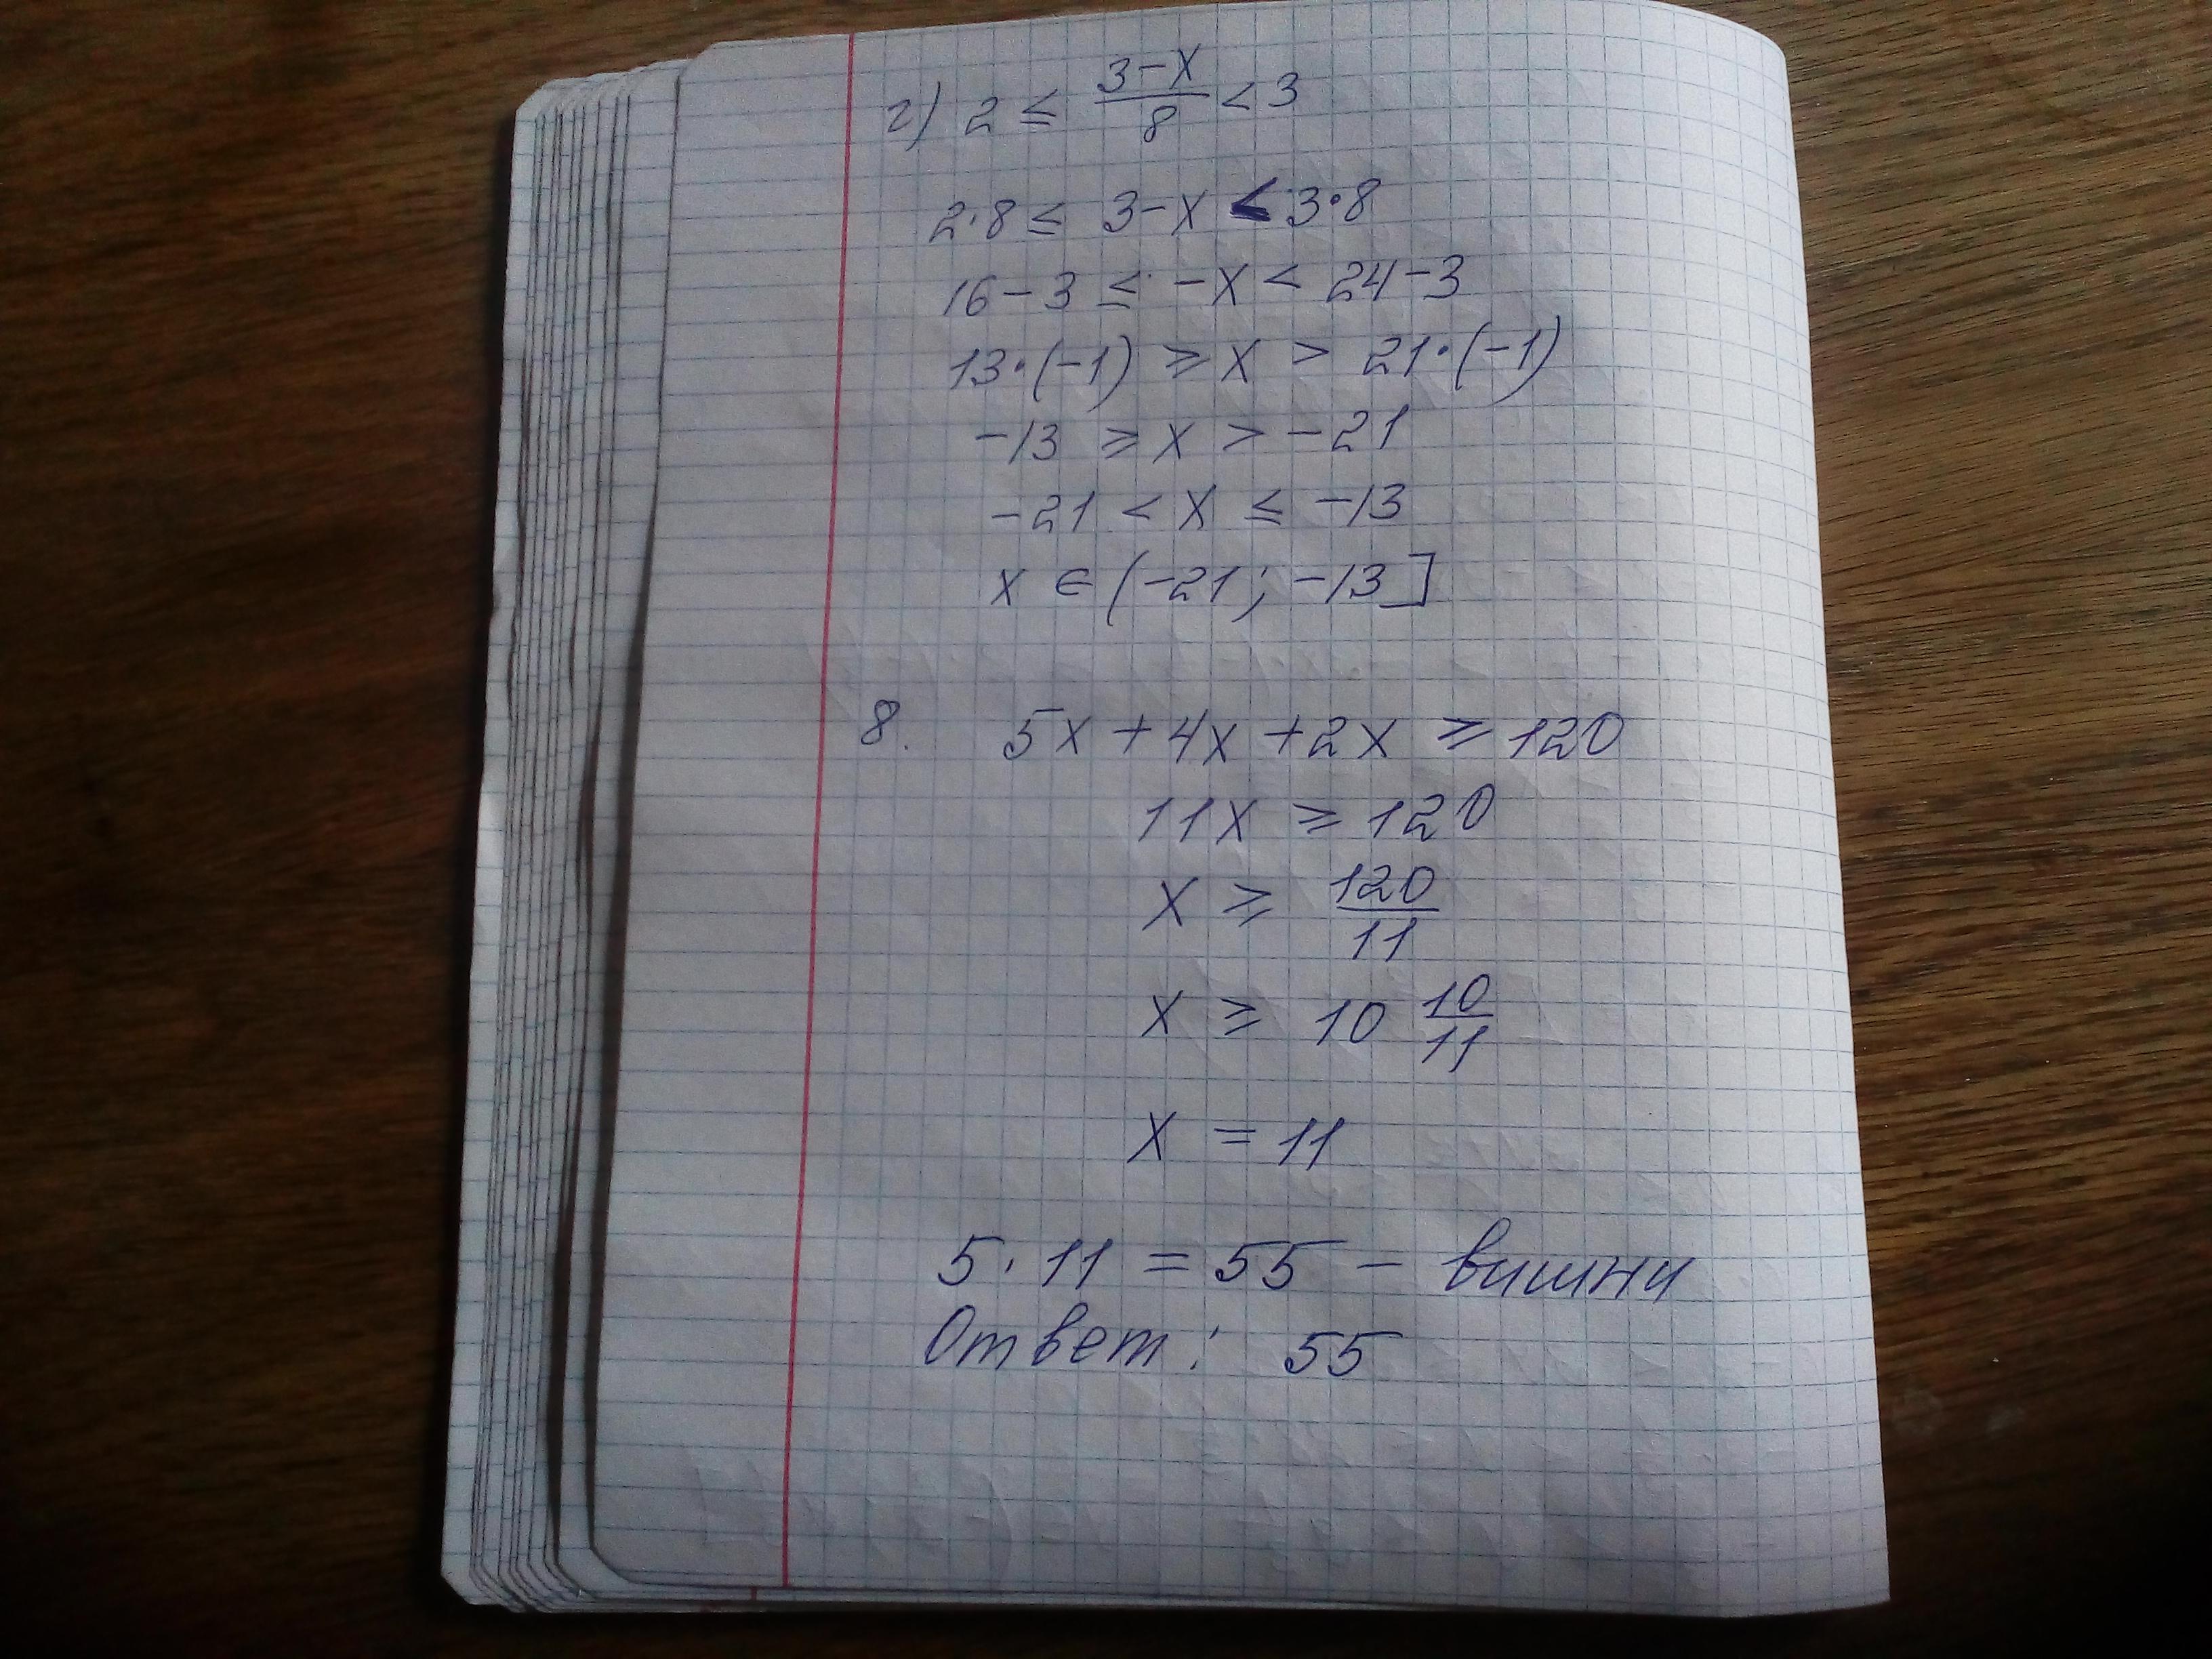 г) 2 ≤ (3-x)/8 < 3
2·8 ≤ 3-x < 3·8
16-3 ≤ -x < 24-3
13·(-1) ⩾ x > 21·(-1)
-13 ⩾ x > -21
-21 < x ≤ -13
x ∈ (-21; -13]
8. 5x + 4x + 2x ⩾ 120
11x ⩾ 120
x ⩾ 120/11
x ⩾ 10 10/11
x = 11
5·11 = 55 - вишни
Ответ: 55